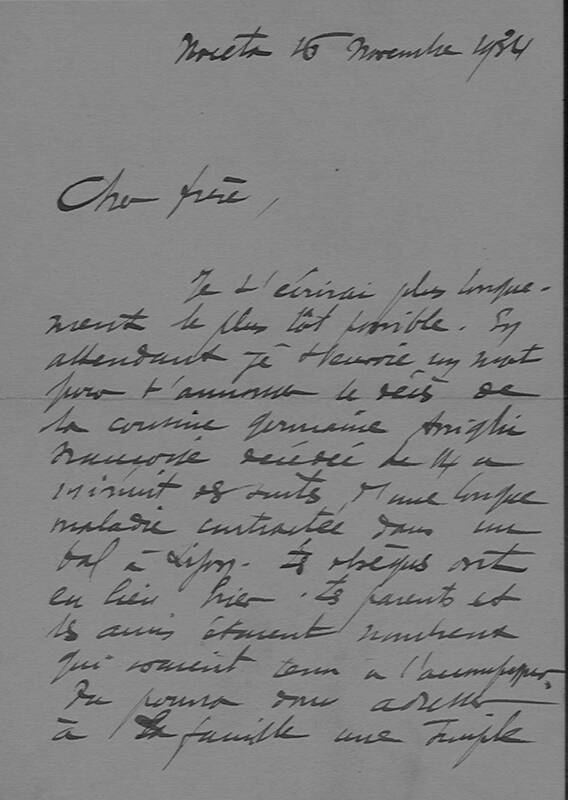 Noceta 16 Novembre 1934
Cher frère,
Je t'écrirai plus longue-
ment le plus tôt possible. En
attendant je t'envoie un mot
pour t'annoncer le décès de
la cousine germaine
Françoise décédée le 14 a
minuit des suites d'une longue
maladie contractée dans un
bal à Lyon. Les obsèques ont
eu lieu hier. Les parents et
les amis étaient nombreux
qui avaient tenu à l'accompagner.
Tu pourras donc adresser
à la famille une simple